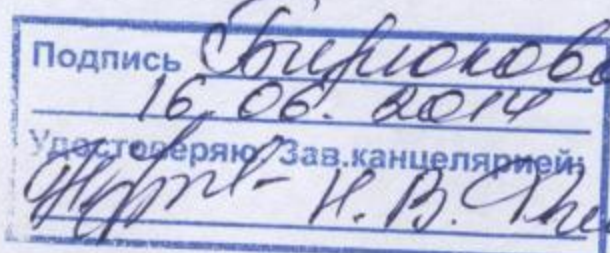 Подпись Бирюкова
16.06.2014
Удостоверяю: Зав.канцелярией:
Н. В.